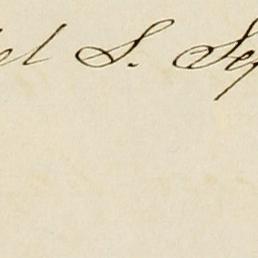 el S. Sey